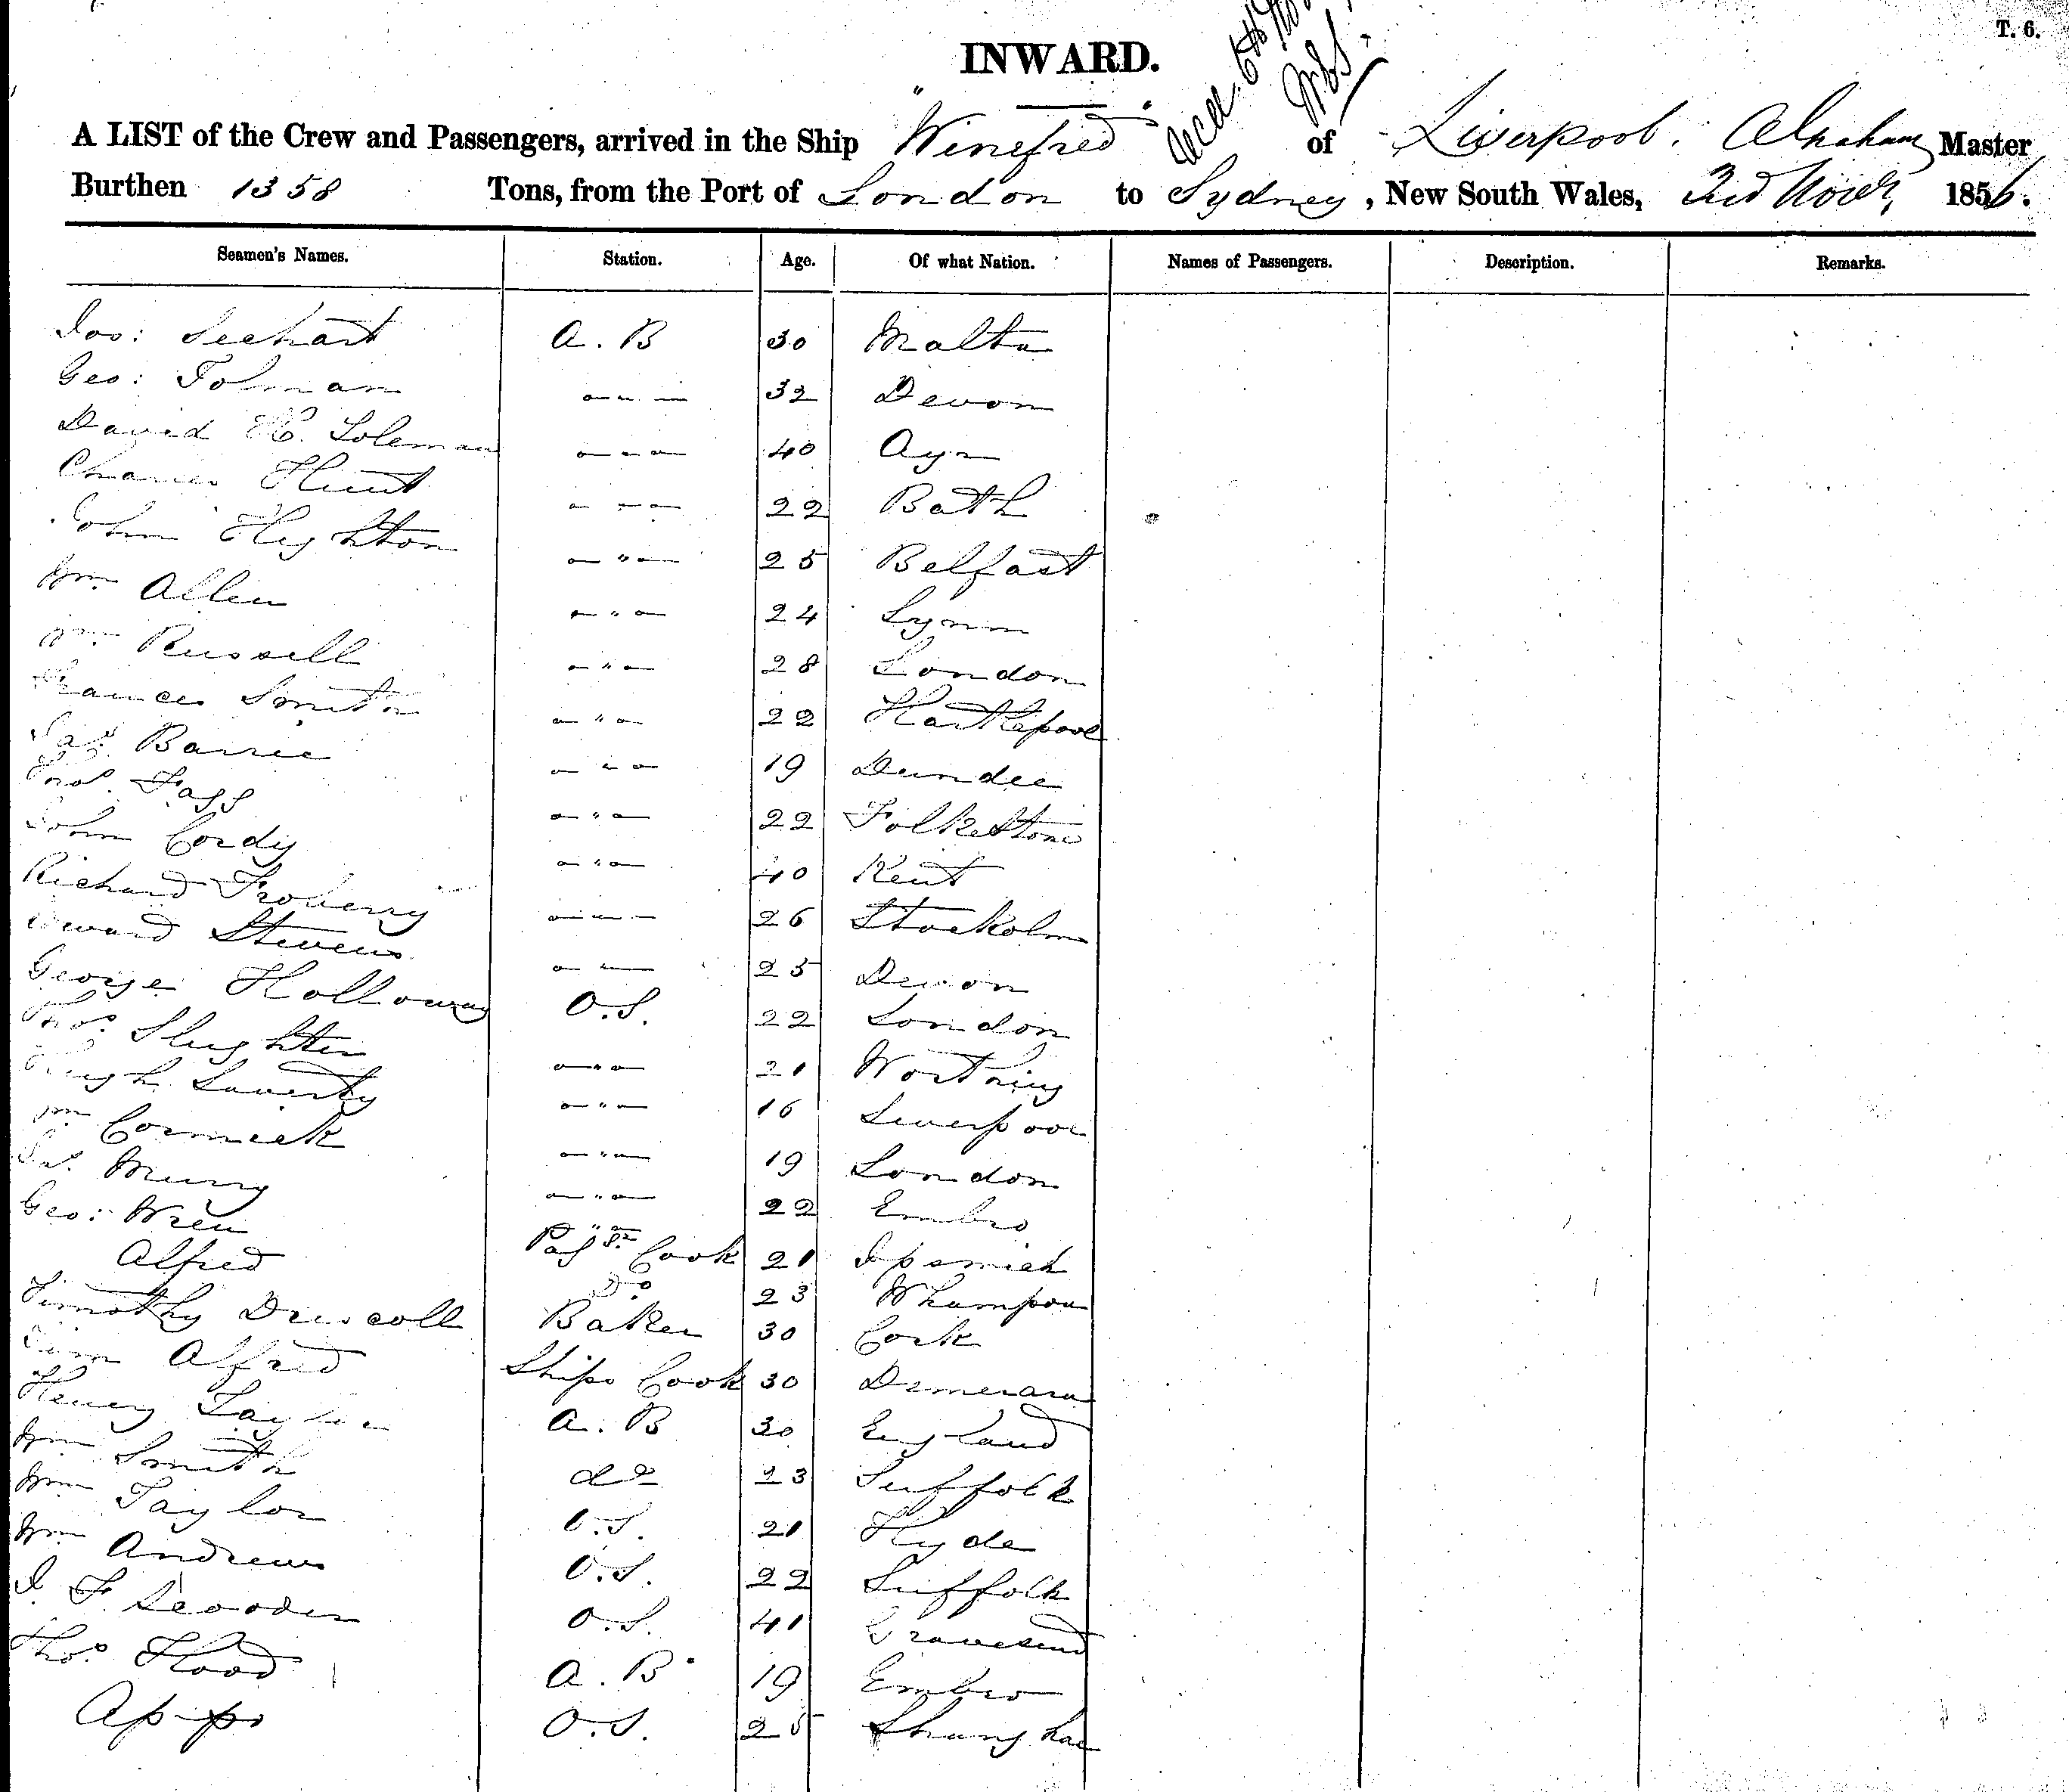 T. 6.
INWARD.
A LIST of the Crew and Passengers, arrived in the Ship "Winefred" of Liverpool. Master
Burthen 1358 Tons, from the Port of London to Sydney, New South Wales, 3rd Novr, 1856.
Seamen's Names. Station. Age. Of what Nation. Names of Passengers. Description. Remarks.
Jos: Seehart A. B 30 Malta
Geo: Tolman 〃 32 Devon
David Soleman 〃 40 Ayr
Charles Hunt 〃 22 Bath
John Highton 〃 25 Belfast
Wm Allen 〃 24 Lynn
Wm Russell 〃 28 London
Frances Smith 〃 22 Hartlepool
Jas Barrie 〃 19 Dundee
Thos Fagg 〃 22 Folkestone
John Cordy 〃 40 Kent
Richard 〃 26 Stockolm
Edward Stevens 〃 25 Devon
George Holloway O.S. 22 London
Thos Slughter 〃 21 Worthing
Hugh Laverty 〃 16 Liverpool
Wm Cormick 〃 19 London
Jas. 〃 22 Embro
Geo: Wren Pasgr Cook 21 Ipswich
Alfred Do 23 Whampoa
Timothy Driscoll Baker 30 Cork
Alfred Ships Cook 30 Demerara
Henry Taylor A. B 30 England
Wm Smith do 23 Suffolk
Wm Taylor O.S. 21 Hyde
Wm Andrews O.S. 22 Suffolk
J. F. O.S. 41 Gravesend
Thos Hood A. B 19 Embro
Ap-po O.S. 25 Shanghae